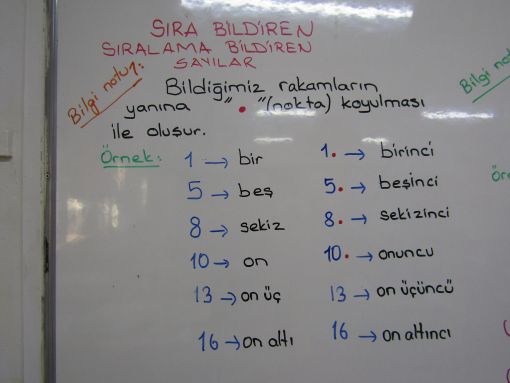 SIRA BİLDİREN
SIRALAMA BİLDİREN
SAYILAR
Bilgi notu:
Bildiğimiz rakamların
yanına " . " (nokta) koyulması
ile oluşur.
Örnek:
1 → bir 1. → birinci
5 → beş 5. → beşinci
8 → sekiz 8. → sekizinci
10 → on 10. → onuncu
13 → on üç 13 → on üçüncü
16 → on altı 16 → on altıncı
Bilgi notu